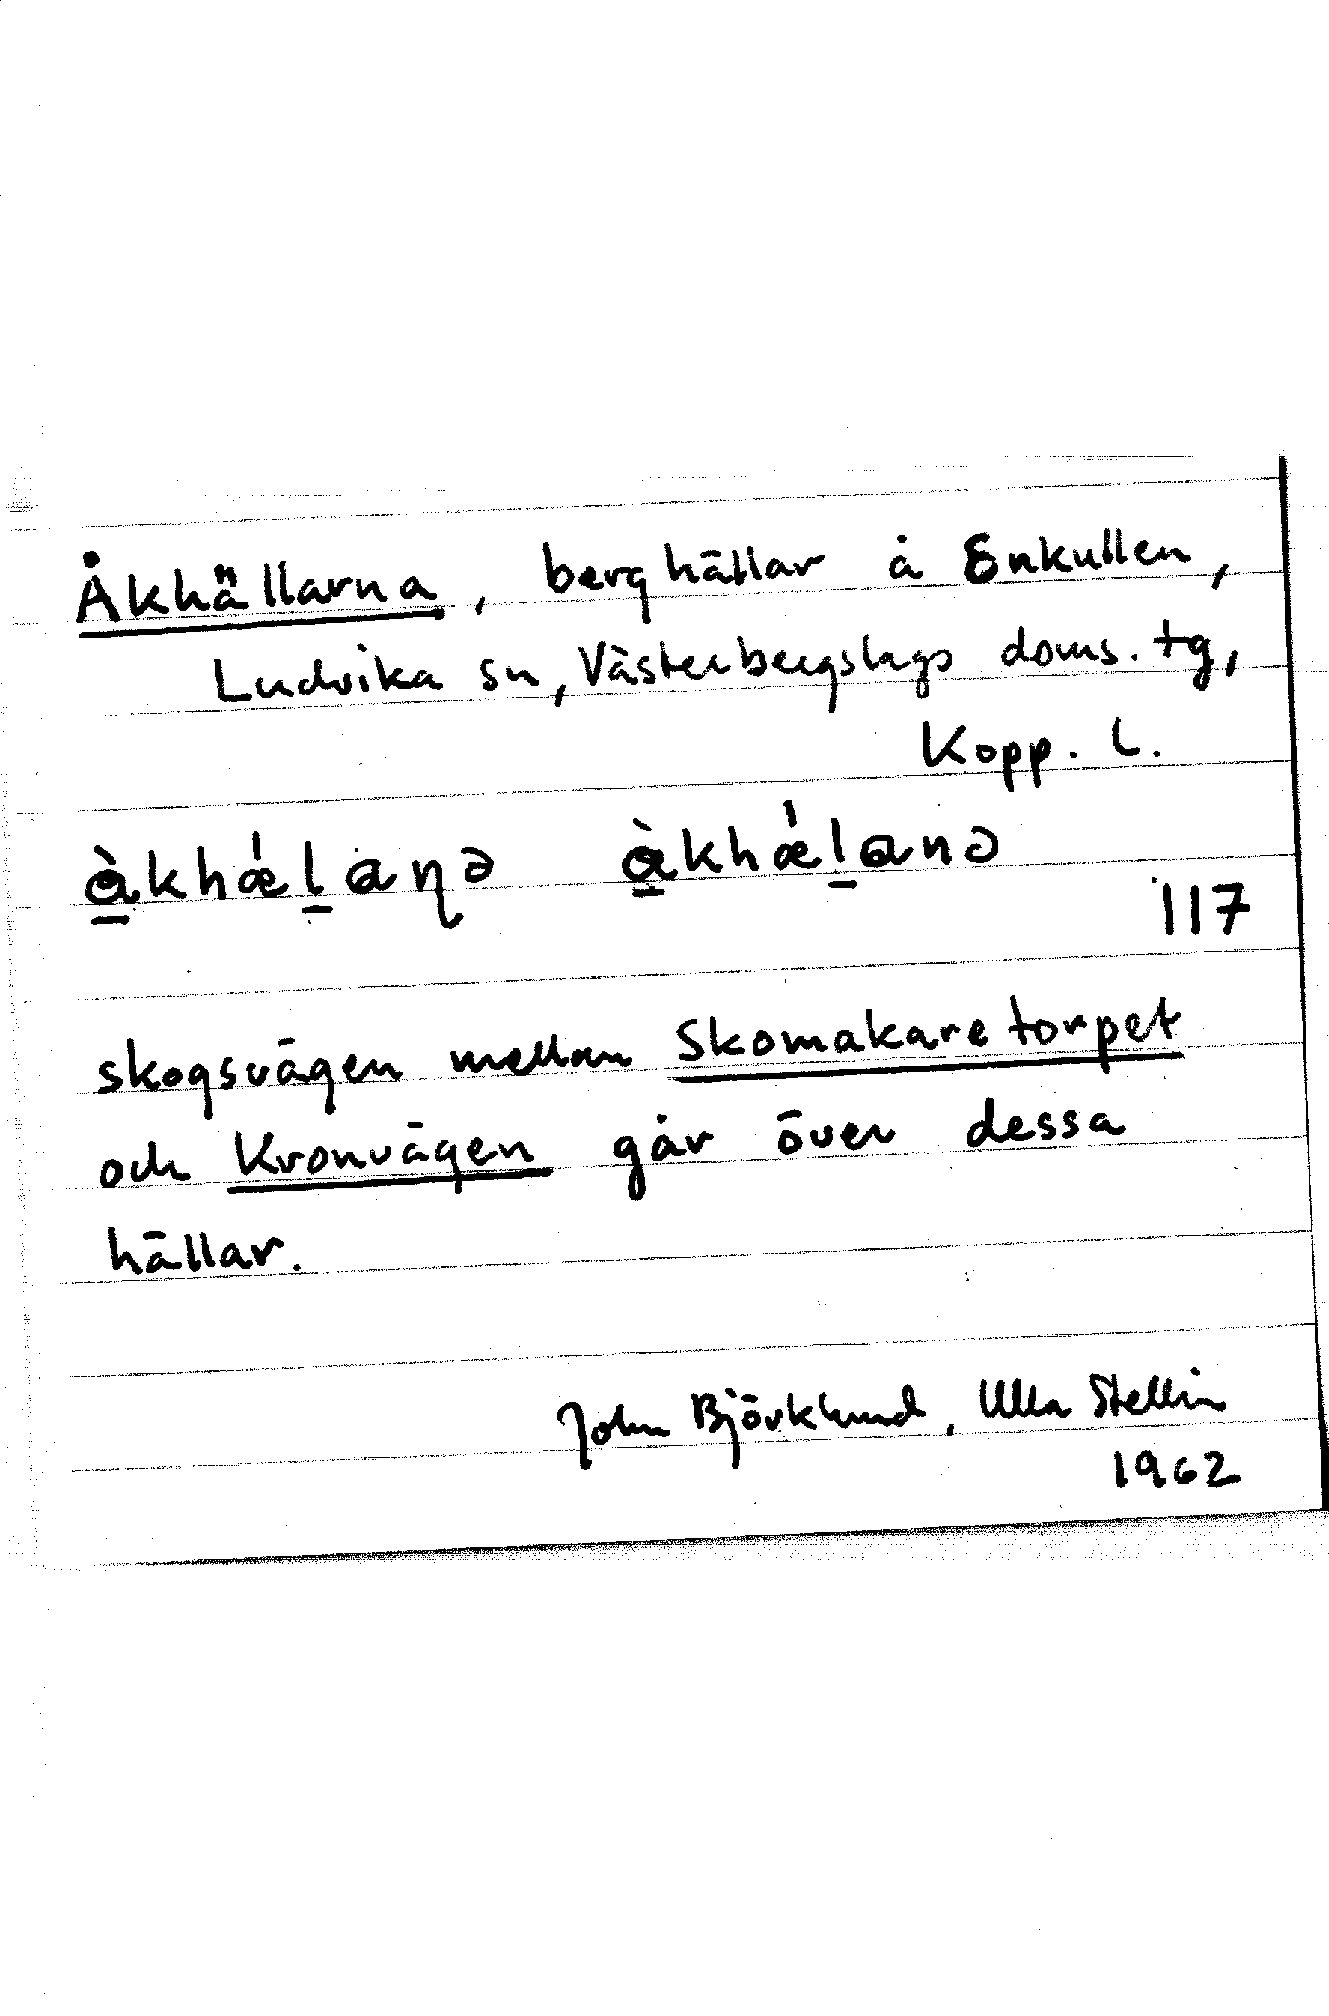 Åkhällarna, berghällar å Enkullen,
Ludvika sn, Västerbergslags doms. tg,
Kopp. l.
å̀khǽl̠aṇə å̀khǽl̠anə
117
skogsvägen mellan Skomakaretorpet
och Kronvägen går över dessa
hällar.
John Björklund, Ulla Stellin
1962